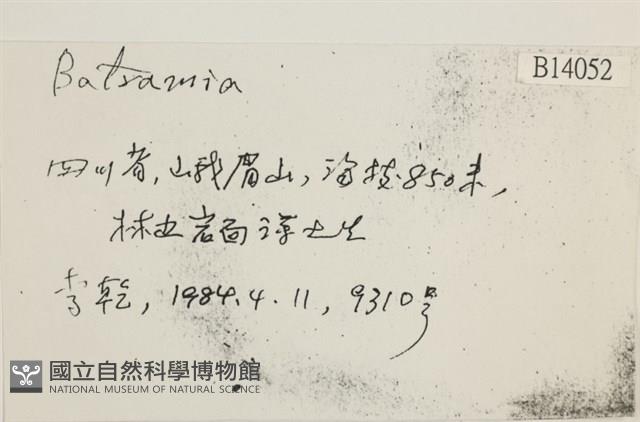 Batramia
B14052
四川省,峨眉山,海拔850米,
林边岩面薄土生
李乾,1984.4.11,9310号
國立自然科學博物館
NATIONAL MUSEUM OF NATURAL SCIENCE